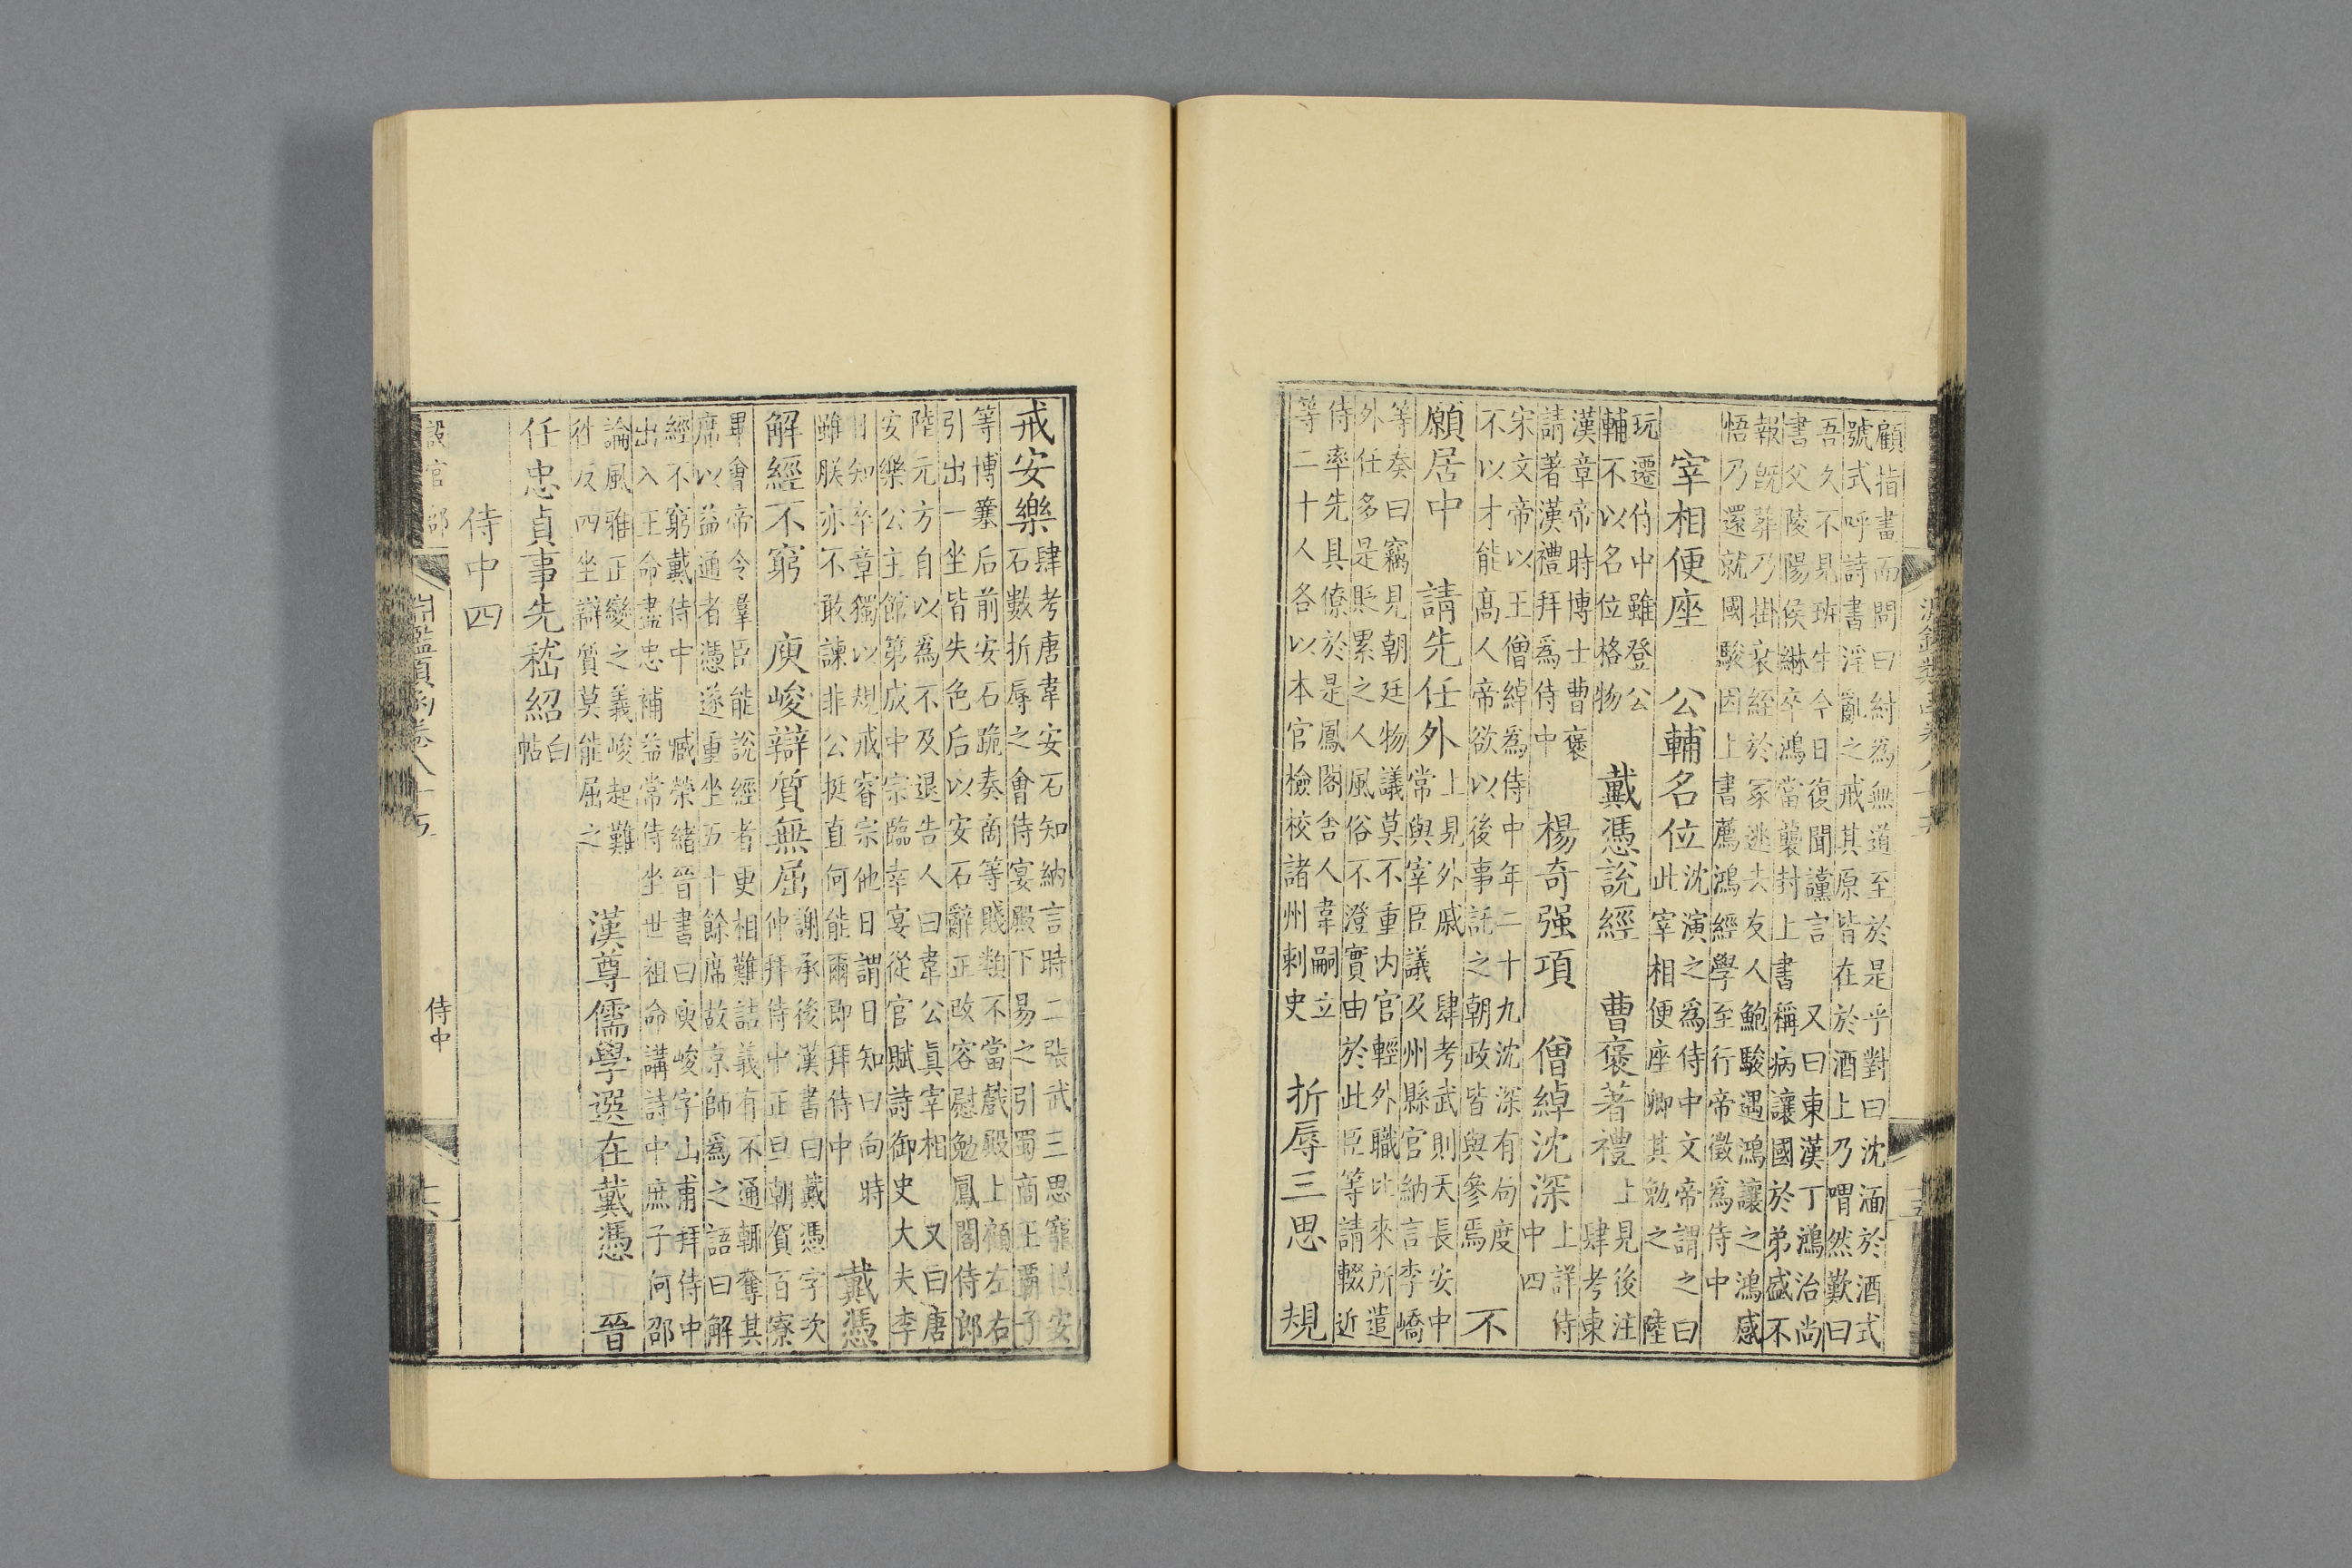 顧指畫而問曰紂爲無道至於是乎對曰沈湎於酒式
號式呼詩書淫亂之戒其原皆在於酒上乃喟然歎曰
吾久不見班生今日復聞讜言　又曰東漢丁鴻治尚
書父陵陽侯綝卒鴻當襲封上書稱病讓國於弟盛不
報旣葬乃掛衰絰於冢逃去友人鮑駿遇鴻讓之鴻感
悟乃還就國駿因上書薦鴻經學至行帝徵爲侍中
宰相便座　公輔名位
沈演之爲侍中文帝謂之曰
此宰相便座卿其勉之　陸
玩遷侍中雖登公
輔不以名位格物
戴憑說經　曹褒著禮
上見後注
肆考東
漢章帝時博士曹褒
請著漢禮拜爲侍中
楊奇强項　僧綽沈深
上詳侍
中四
宋文帝以王僧綽爲侍中年二十九沈深有句度
不以才能高人帝欲以後事託之朝政皆與參焉
不
願居中　請先任外
上見外戚　肆考武則天長安中
常與宰臣議及州縣官納言李嶠
等奏曰竊見朝廷物議莫不重内官輕外職比來所遣
外任多是貶累之人風俗不澄實由於此臣等請輟近
侍率先具僚於是鳳閣舍人韋嗣立
等二十人各以本官檢校諸州刺史
折辱三思　規
戒安樂
肆考唐韋安石知納言時二張武三思寵　安
石數折辱之會侍宴殿下易之引蜀商王霸子
等博簺后前安石跪奏商等賤類不當戲殿上顧左右
引出一坐皆失色后以安石辭正改容慰勉鳳閣侍郎
陸元方自以爲不及退告人曰韋公眞宰相　又曰唐
安樂公主館第成中宗臨幸宴從官賦詩御史大夫李
日知卒章獨以規戒睿宗他日謂日知曰向時
雖朕亦不敢諫非公挺直何能爾即拜侍中
戴憑
解經不窮　庾峻辯質無屈
謝承後漢書曰戴憑字次
仲拜侍中正旦朝賀百寮
畢會帝令羣臣能說經者更相難詰義有不通輒奪其
席以益通者憑遂重坐五十餘席故京師爲之語曰解
經不窮戴侍中　臧榮緒晉書曰庾峻字山甫拜侍中
出入王命盡忠補益常侍坐世祖命講詩中庶子何邵
論風雅正變之義峻起難
徃反四坐辯質莫能屈之
漢尊儒學選在戴憑　晉
任忠貞事先嵇紹
白
帖
侍中四
設官部
淵鑑類函卷八十五
侍中